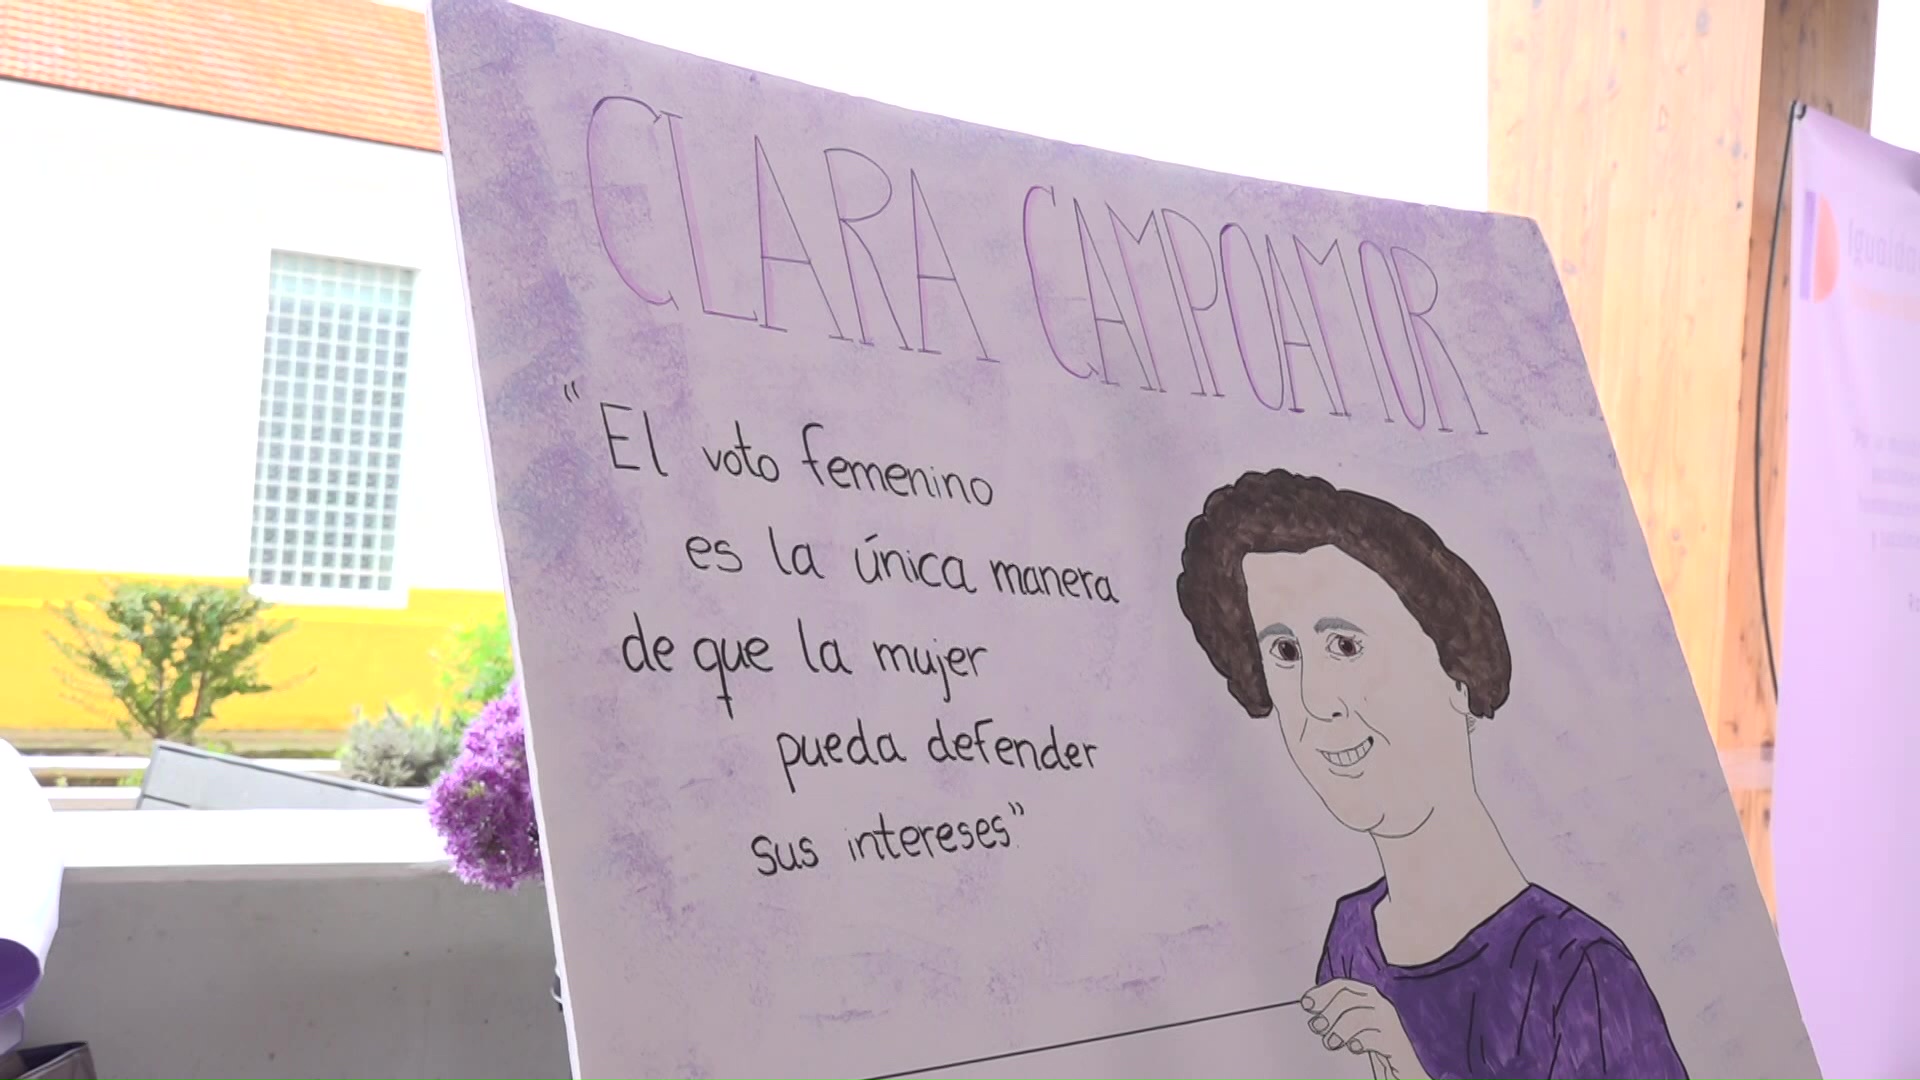 CLARA CAMPOAMOR
"El voto femenino
es la única manera
de que la mujer
pueda defender
sus intereses"